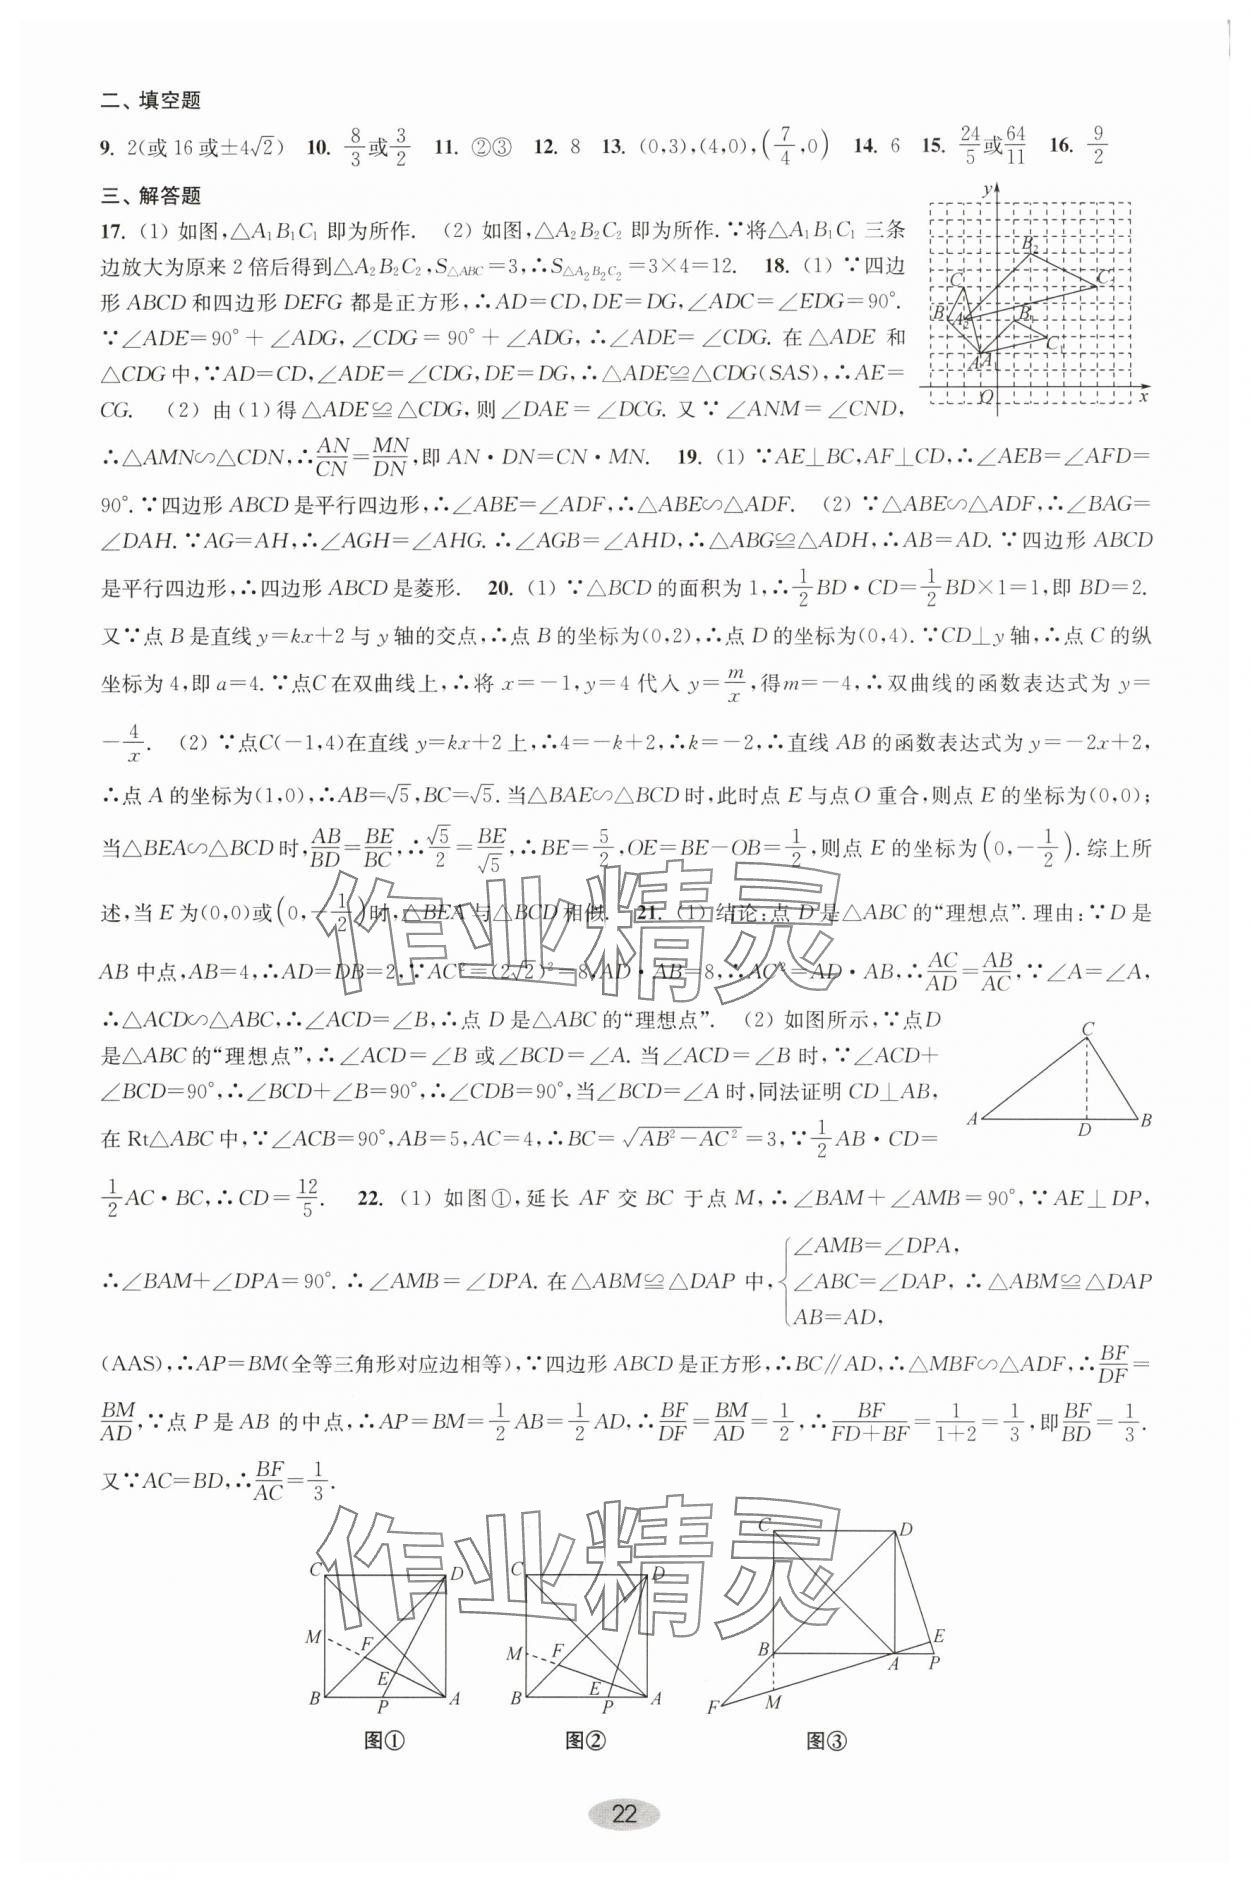 二、填空题
9. 2(或 16 或±4√2) 10. 8/3或3/2 11. ②③ 12. 8 13. (0,3),(4,0),(7/4,0) 14. 6 15. 24/5或64/11 16. 9/2
三、解答题
17. (1) 如图,△A₁B₁C₁ 即为所作. (2) 如图,△A₂B₂C₂ 即为所作.∵将△A₁B₁C₁ 三条
边放大为原来 2 倍后得到△A₂B₂C₂,S△ABC=3,∴S△A₂B₂C₂=3×4=12. 18. (1) ∵四边
形 ABCD 和四边形 DEFG 都是正方形,∴AD=CD,DE=DG,∠ADC=∠EDG=90°.
∵∠ADE=90°+∠ADG,∠CDG=90°+∠ADG,∴∠ADE=∠CDG. 在△ADE 和
△CDG 中,∵AD=CD,∠ADE=∠CDG,DE=DG,∴△ADE≌△CDG(SAS),∴AE=
CG. (2) 由(1)得△ADE≌△CDG,则∠DAE=∠DCG. 又∵∠ANM=∠CND,
∴△AMN∽△CDN,∴AN/CN=MN/DN,即 AN·DN=CN·MN. 19. (1) ∵AE⊥BC,AF⊥CD,∴∠AEB=∠AFD=
90°.∵四边形 ABCD 是平行四边形,∴∠ABE=∠ADF,∴△ABE∽△ADF. (2) ∵△ABE∽△ADF,∴∠BAG=
∠DAH.∵AG=AH,∴∠AGH=∠AHG.∴∠AGB=∠AHD,∴△ABG≌△ADH,∴AB=AD.∵四边形 ABCD
是平行四边形,∴四边形 ABCD 是菱形. 20. (1) ∵△BCD 的面积为 1,∴1/2BD·CD=1/2BD×1=1,即 BD=2.
又∵点 B 是直线 y=kx+2 与 y 轴的交点,∴点 B 的坐标为(0,2),∴点 D 的坐标为(0,4).∵CD⊥y 轴,∴点 C 的纵
坐标为 4,即 a=4.∵点C 在双曲线上,∴将 x=−1,y=4 代入 y=m/x,得m=−4,∴双曲线的函数表达式为 y=
−4/x. (2) ∵点C(−1,4)在直线 y=kx+2 上,∴4=−k+2,∴k=−2,∴直线 AB 的函数表达式为 y=−2x+2,
∴点 A 的坐标为(1,0),∴AB=√5,BC=√5.当△BAE∽△BCD 时,此时点 E 与点O 重合,则点 E 的坐标为(0,0);
当△BEA∽△BCD 时,AB/BD=BE/BC,∴√5/2=BE/√5,∴BE=5/2,OE=BE−OB=1/2,则点 E 的坐标为(0,−1/2).综上所
述,当 E 为(0,0)或(0,−1/2)时,△BEA 与△BCD 相似. 21. (1) 结论:点 D 是△ABC 的“理想点”.理由:∵D 是
AB 中点,AB=4,∴AD=DB=2,∵AC²=(2√2)²=8,AD·AB=8,∴AC²=AD·AB,∴AC/AD=AB/AC,∵∠A=∠A,
∴△ACD∽△ABC,∴∠ACD=∠B,∴点 D 是△ABC 的“理想点”. (2) 如图所示,∵点D
是△ABC 的“理想点”,∴∠ACD=∠B 或∠BCD=∠A. 当∠ACD=∠B 时,∵∠ACD+
∠BCD=90°,∴∠BCD+∠B=90°,∴∠CDB=90°,当∠BCD=∠A 时,同法证明 CD⊥AB,
在 Rt△ABC 中,∵∠ACB=90°,AB=5,AC=4,∴BC=√(AB²−AC²)=3,∵1/2AB·CD=
1/2AC·BC,∴CD=12/5. 22. (1) 如图①,延长 AF 交 BC 于点 M,∴∠BAM+∠AMB=90°,∵AE⊥DP,
∴∠BAM+∠DPA=90°.∴∠AMB=∠DPA. 在△ABM≌△DAP 中,{∠AMB=∠DPA, ∠ABC=∠DAP, AB=AD, ∴△ABM≌△DAP
(AAS),∴AP=BM(全等三角形对应边相等),∵四边形 ABCD 是正方形,∴BC∥AD,∴△MBF∽△ADF,∴BF/DF=
BM/AD,∵点 P 是 AB 的中点,∴AP=BM=1/2AB=1/2AD,∴BF/DF=BM/AD=1/2,∴BF/(FD+BF)=1/(1+2)=1/3,即BF/BD=1/3.
又∵AC=BD,∴BF/AC=1/3.
y
B₂
C
C₂
B
A₂
B₁
C₁
A
A₁
O
x
C
A
D
B
作业精灵
作业精灵
C
D
M
F
E
B
P
A
图①
C
D
M
F
E
B
P
A
图②
C
D
B
A
E
P
M
F
图③
22